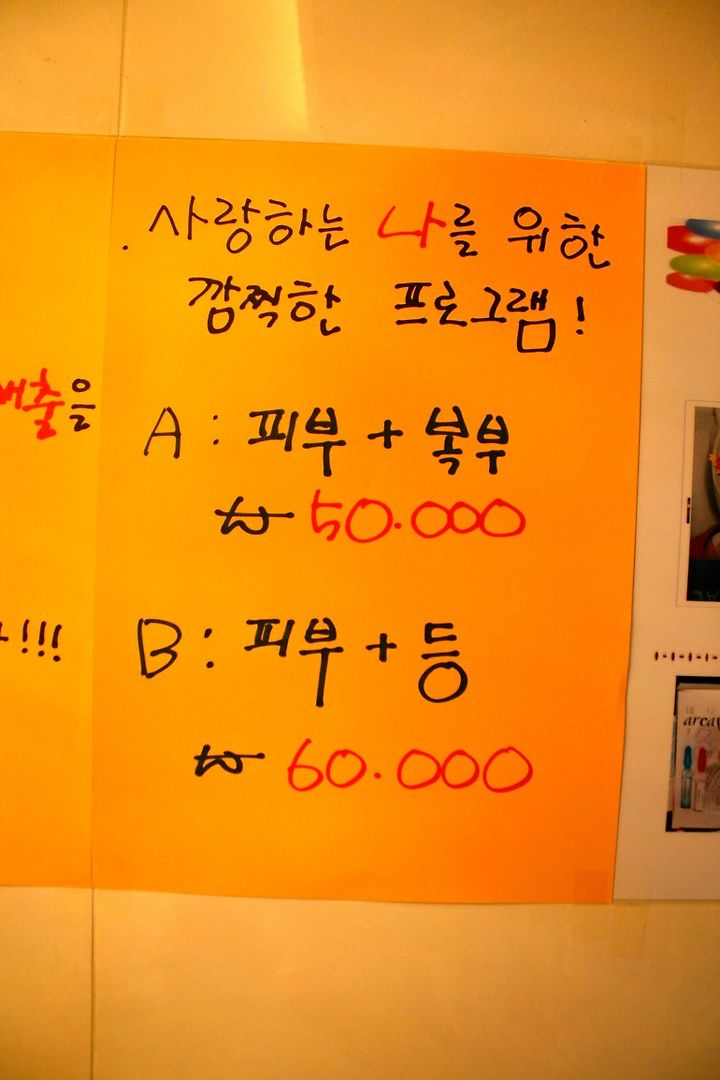 . 사랑하는 나를 위한
깜찍한 프로그램!
A : 피부 + 복부
₩ 50.000
B : 피부 + 등
₩ 60.000
배출을
!!!